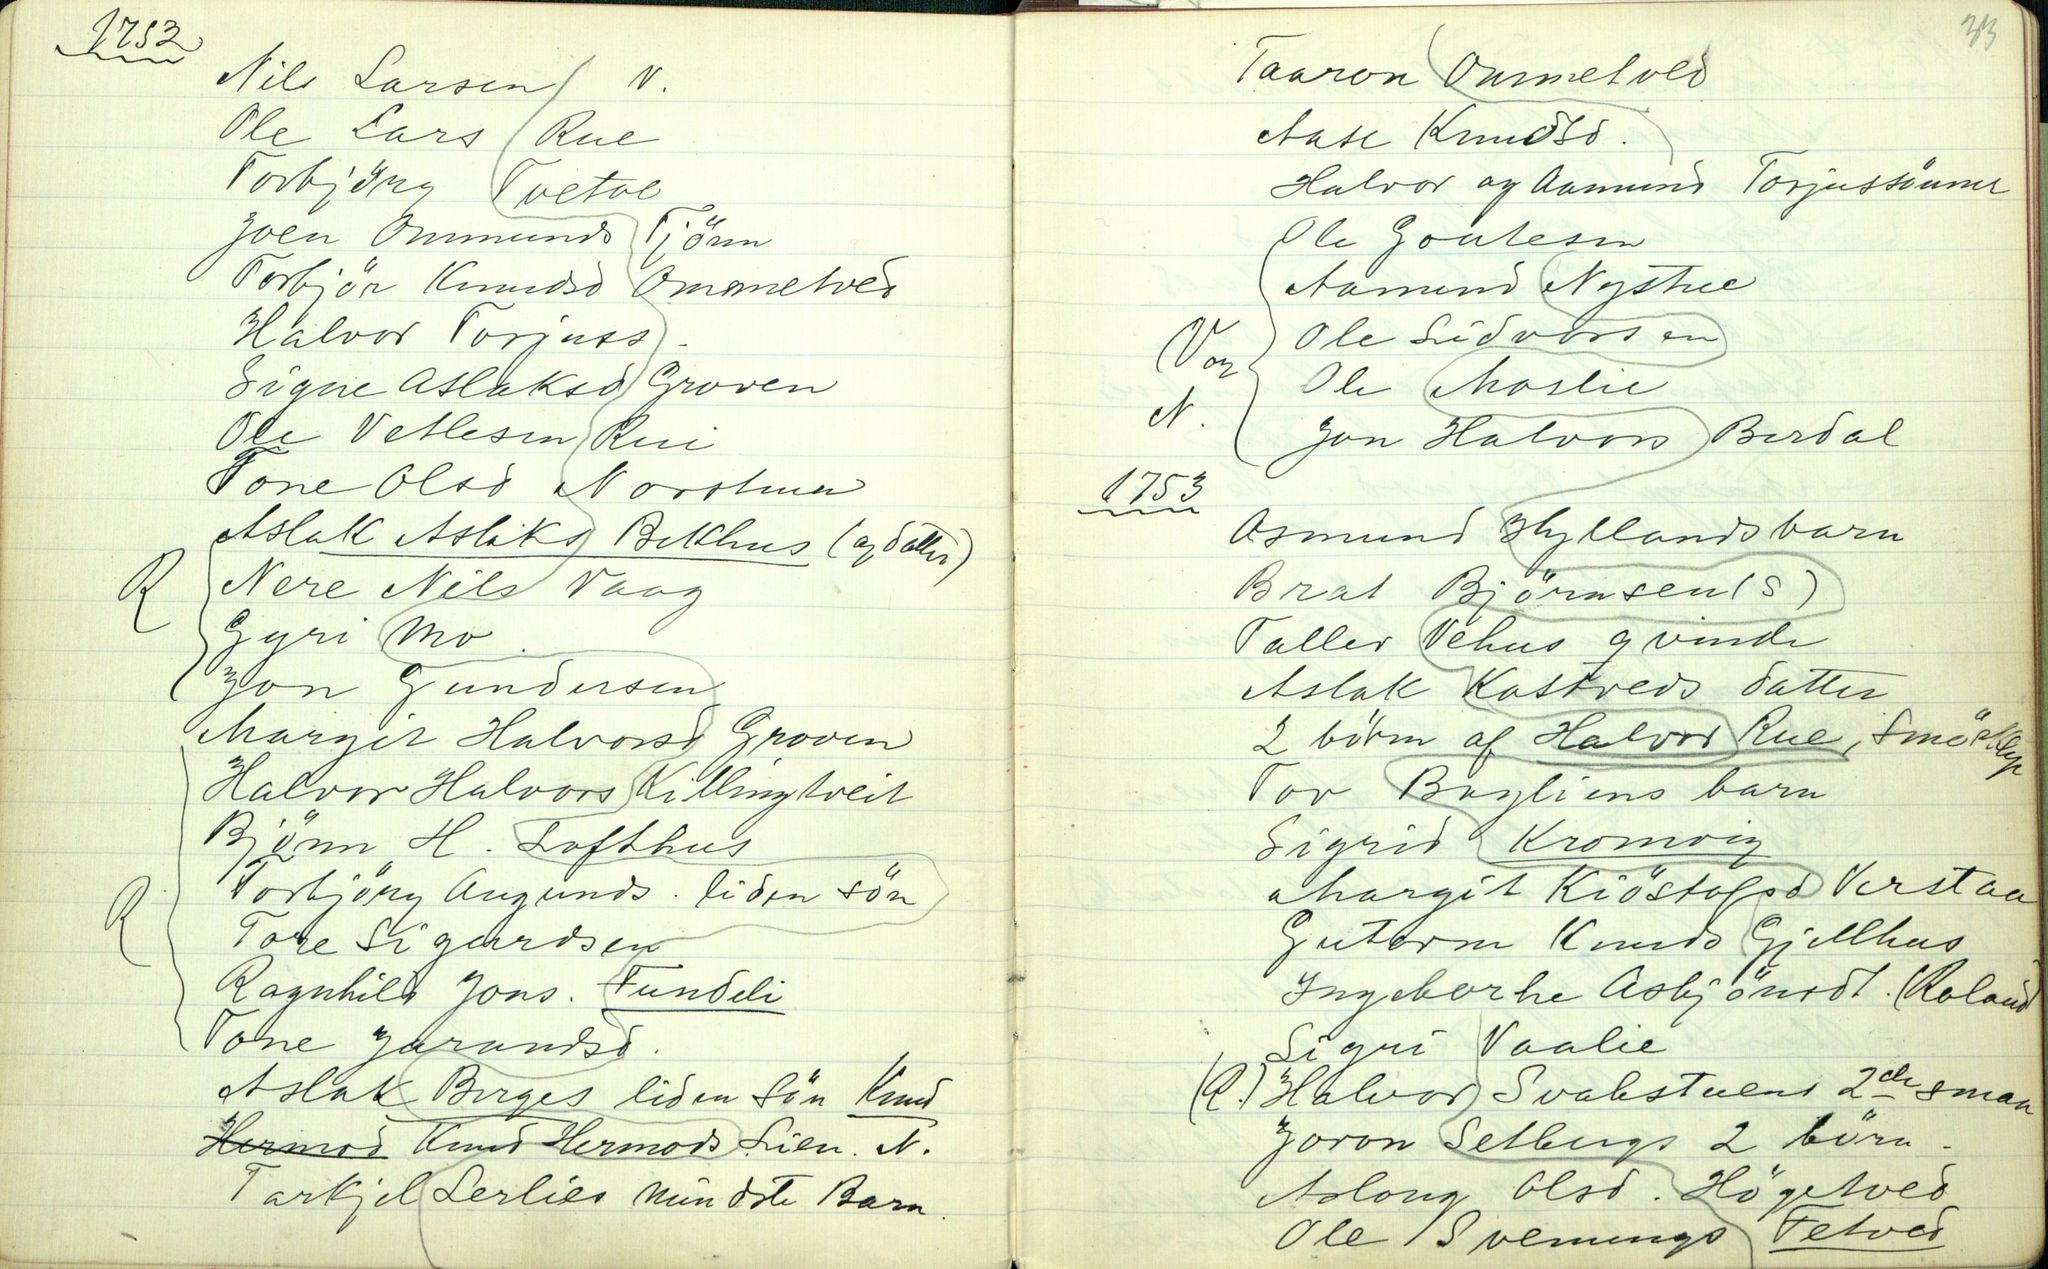 1752
Nils Larsen V.
Ole Lars Rue
Torbjörg Tvetoe
Joen Ommunds Tjönn
Torbjör Knudsd Ommetved
Halvor Torjuss.
Signe Aslaksd Groven
Ole Vetlesen Rui
Tone Olsd Norstuen
Aslak Aslaks Bekhus (og datter)
R
Nere Nils Vaag
Gyri Mo.
Jon Gundersen
Margit Halvorsd Groven
Halvor Halvors Killingtveit
Björn H. Lofthus
Torbjörg Augunds. liden sön
R
Tore Sigurdsen
Ragnhild Jons. Fundeli
Tone Jørundsd.
Aslak Berges liden sön Knud
Hermod Knud Hermods Lien. N.
Tarkjel Lerlies mindste Barn.
33
Taaron Ommetved
Aase Knudsd.
Halvor og Aamund Torjussönner
Ole Goutesen
Aamund Nystue
V og N.
Ole Sidvorsen
Ole Moslie
Jon Halvors Berdal
1753
Asmund Hyllands barn
Brat Björnsen (S)
Taller Vehus qvinde
Aslak Kostveds datter
2 börn af Halvor Rue, Smörklep
Tov Bøgliens barn
Sigrid Kromvig
Margit Kiöstofsd Verstaa
Gutorm Knuds Gjellhus
Ingeborhe Asbjönsdt. (Roland
Sigri Vaalie
(R.) Halvor Svalestuens 2de smaa
Joron Selbergs 2 börn.
Asloug Olsd. Högetved
Ole Svenungs Fetved